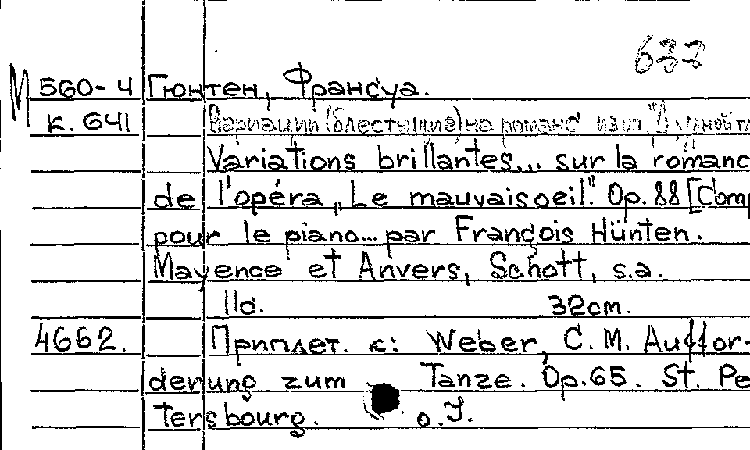 632
М 560-4 Гюнтен, Франсуа.
к. 641 Вариации (блестящие) на романс из оп.
Variations brillantes... sur la romanc
de l'opéra „Le mauvais oeil". Op. 88 [Comp
pour le piano... par François Hünten.
Mayence et Anvers, Schott, s.a.
11d. 32cm.
4662. Приплет. к: Weber, C. M. Auffor-
derung zum Tanze. Op. 65. St. Pe
tersbourg. o. J.